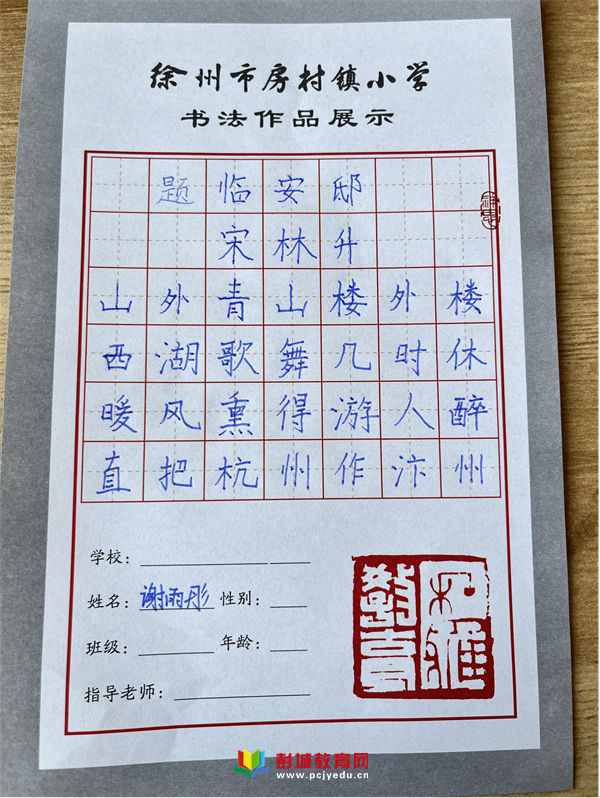 徐州市房村镇小学
书法作品展示
题临安邸
宋林升
山外青山楼外楼
西湖歌舞几时休
暖风熏得游人醉
直把杭州作汴州
学校：
姓名：谢雨彤 性别：
班级： 年龄：
指导老师：
彭城教育网
www.pcjyedu.cn